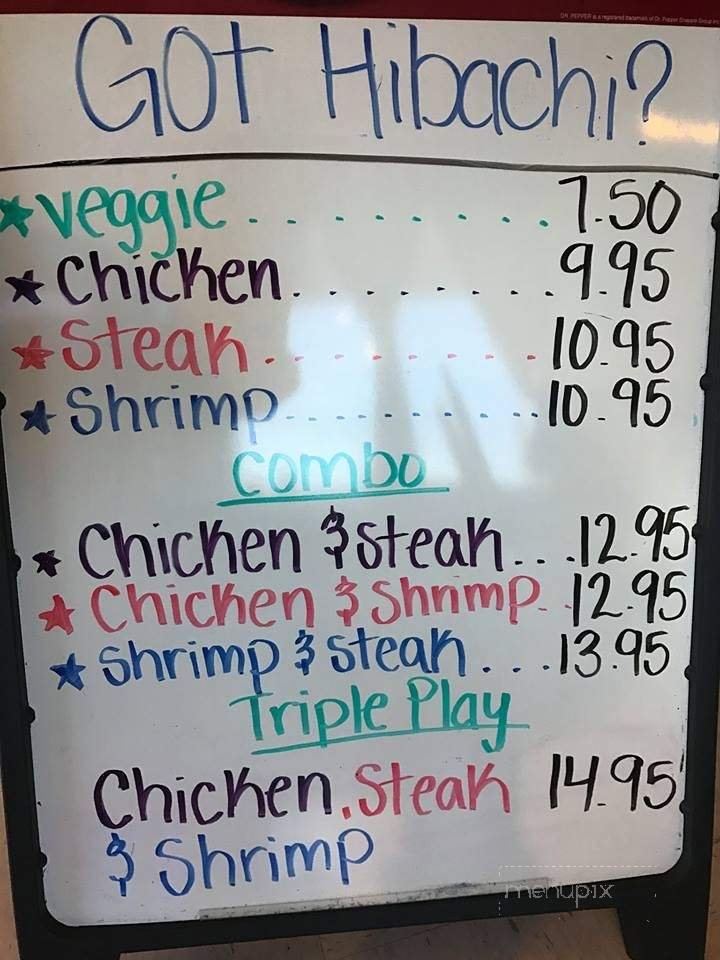 DR. PEPPER is a registered trademark of Dr. Pepper Snapple Group Inc.
Got Hibachi?
★ veggie . . . . . . . . 7.50
★ Chicken . . . . . . . . 9.95
★ Steak . . . . . . . . 10.95
★ Shrimp . . . . . . . . . . 10.95
Combo
★ Chicken & Steak . . . 12.95
★ Chicken & Shrimp . . 12.95
★ Shrimp & Steak . . . 13.95
Triple Play
Chicken, Steak 14.95
& Shrimp
menupix